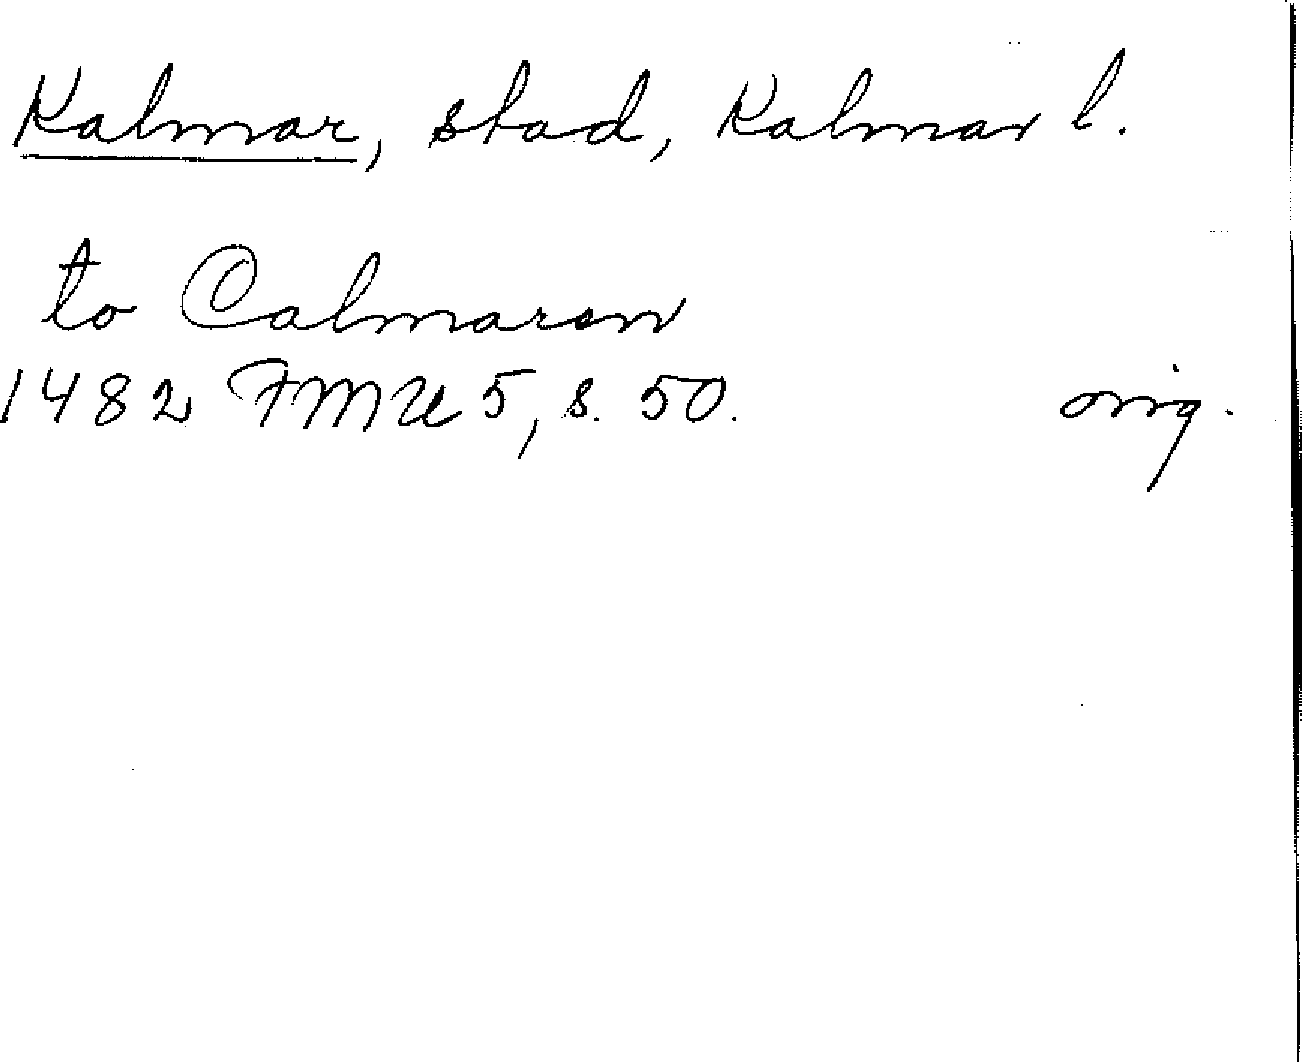 Kalmar, stad, Kalmar l.
to Calmaren
1482 FMU 5, s. 50. orig.